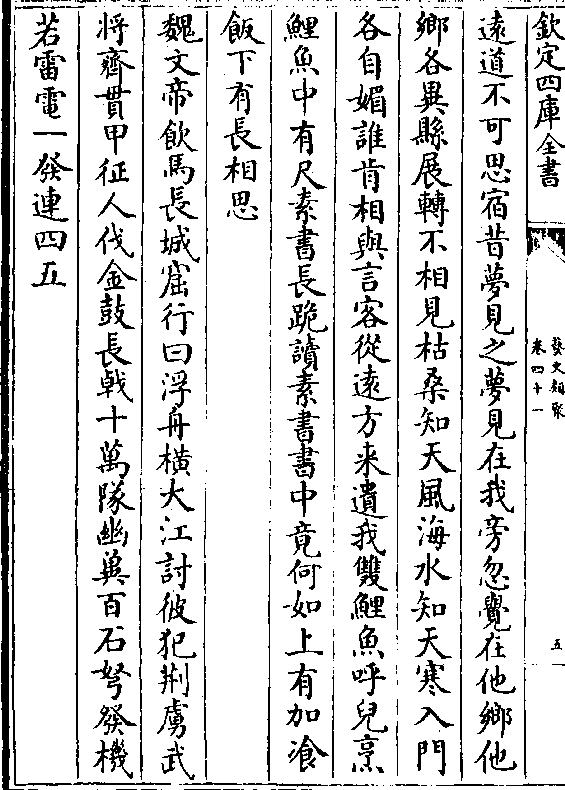 欽定四庫全書
藝文類聚
卷四十一
五
遠道不可思宿昔夢見之夢見在我旁忽覺在他鄉他
鄉各異縣展轉不相見枯桑知天風海水知天寒入門
各自媚誰肯相與言客從遠方来遺我雙鯉魚呼兒烹
鯉魚中有尺素書長跪讀素書書中竟何如上有加飡
飯下有長相思
魏文帝飲馬長城窟行曰浮舟橫大江討彼犯荆虜武
將齊貫甲征人伐金鼓長戟十萬隊幽兾百石弩發機
若雷電一發連四五